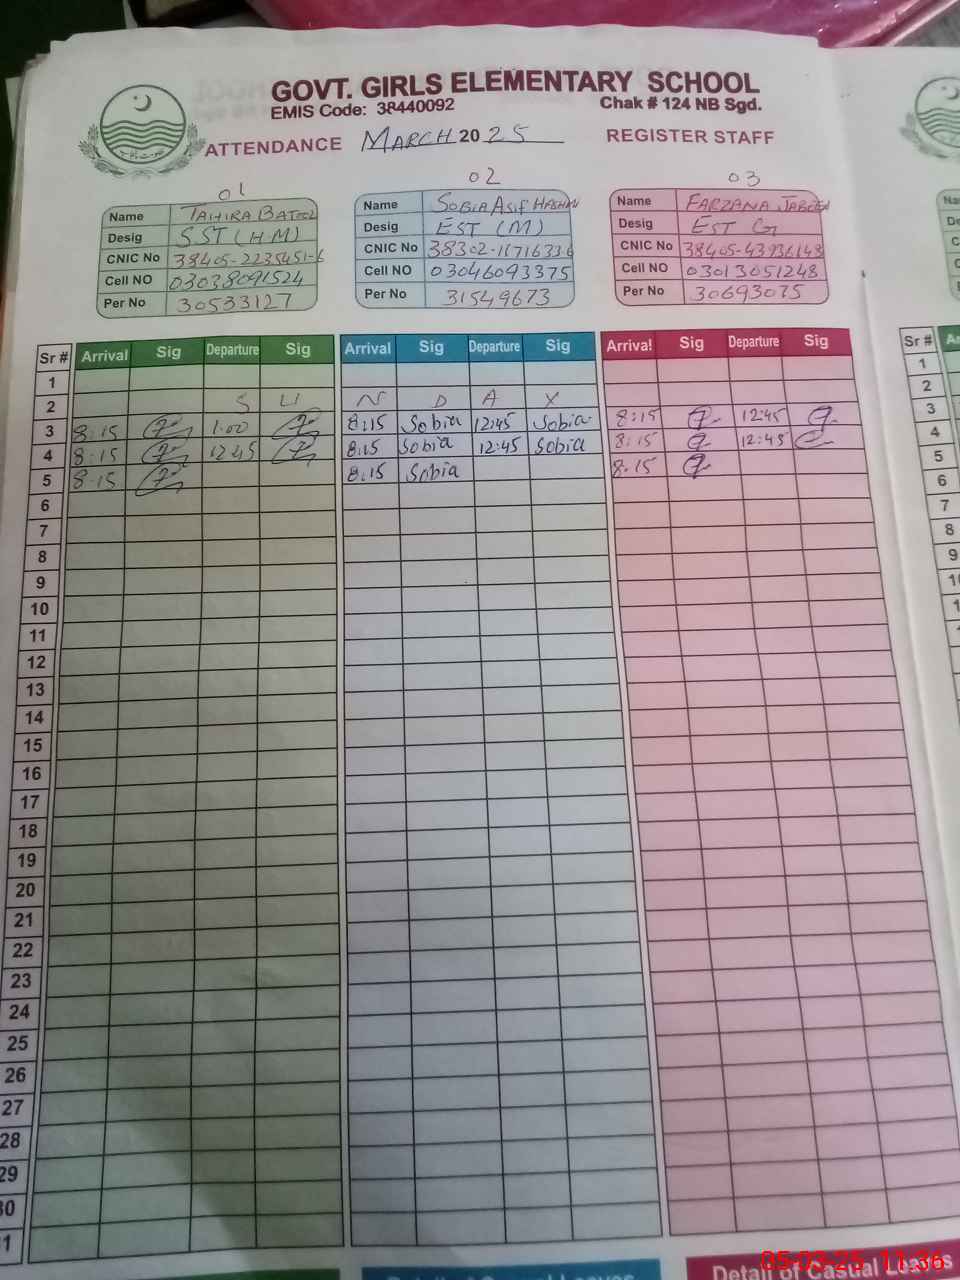 GOVT. GIRLS ELEMENTARY SCHOOL
EMIS Code: 38440092 Chak # 124 NB Sgd.
ATTENDANCE MARCH 2025 REGISTER STAFF
01 02 03
Name TAHIRA BATOOL Name SOBIA ASIF Name FARZANA JABEEN
Desig SST (H.M) Desig EST (M) Desig EST G
CNIC No 38405-2235451-6 CNIC No CNIC No
Cell NO 03038091524 Cell NO 03046093375 Cell NO 03013051248
Per No 30533127 Per No 31549673 Per No 30693075
Sr # Arrival Sig Departure Sig Arrival Sig Departure Sig Arrival Sig Departure Sig Sr #
1 1
2 S U N D A Y 2
3 8:15 1.00 8:15 Sobia 12:45 Sobia 8:15 12:45 3
4 8:15 12:45 8:15 Sobia 12:45 Sobia 8:15 12:45 4
5 8:15 8:15 Sobia 8:15 5
6 6
7 7
8 8
9 9
10
11
12
13
14
15
16
17
18
19
20
21
22
23
24
25
26
27
28
29
Detail of Casual Leaves
05-03-25 11:36